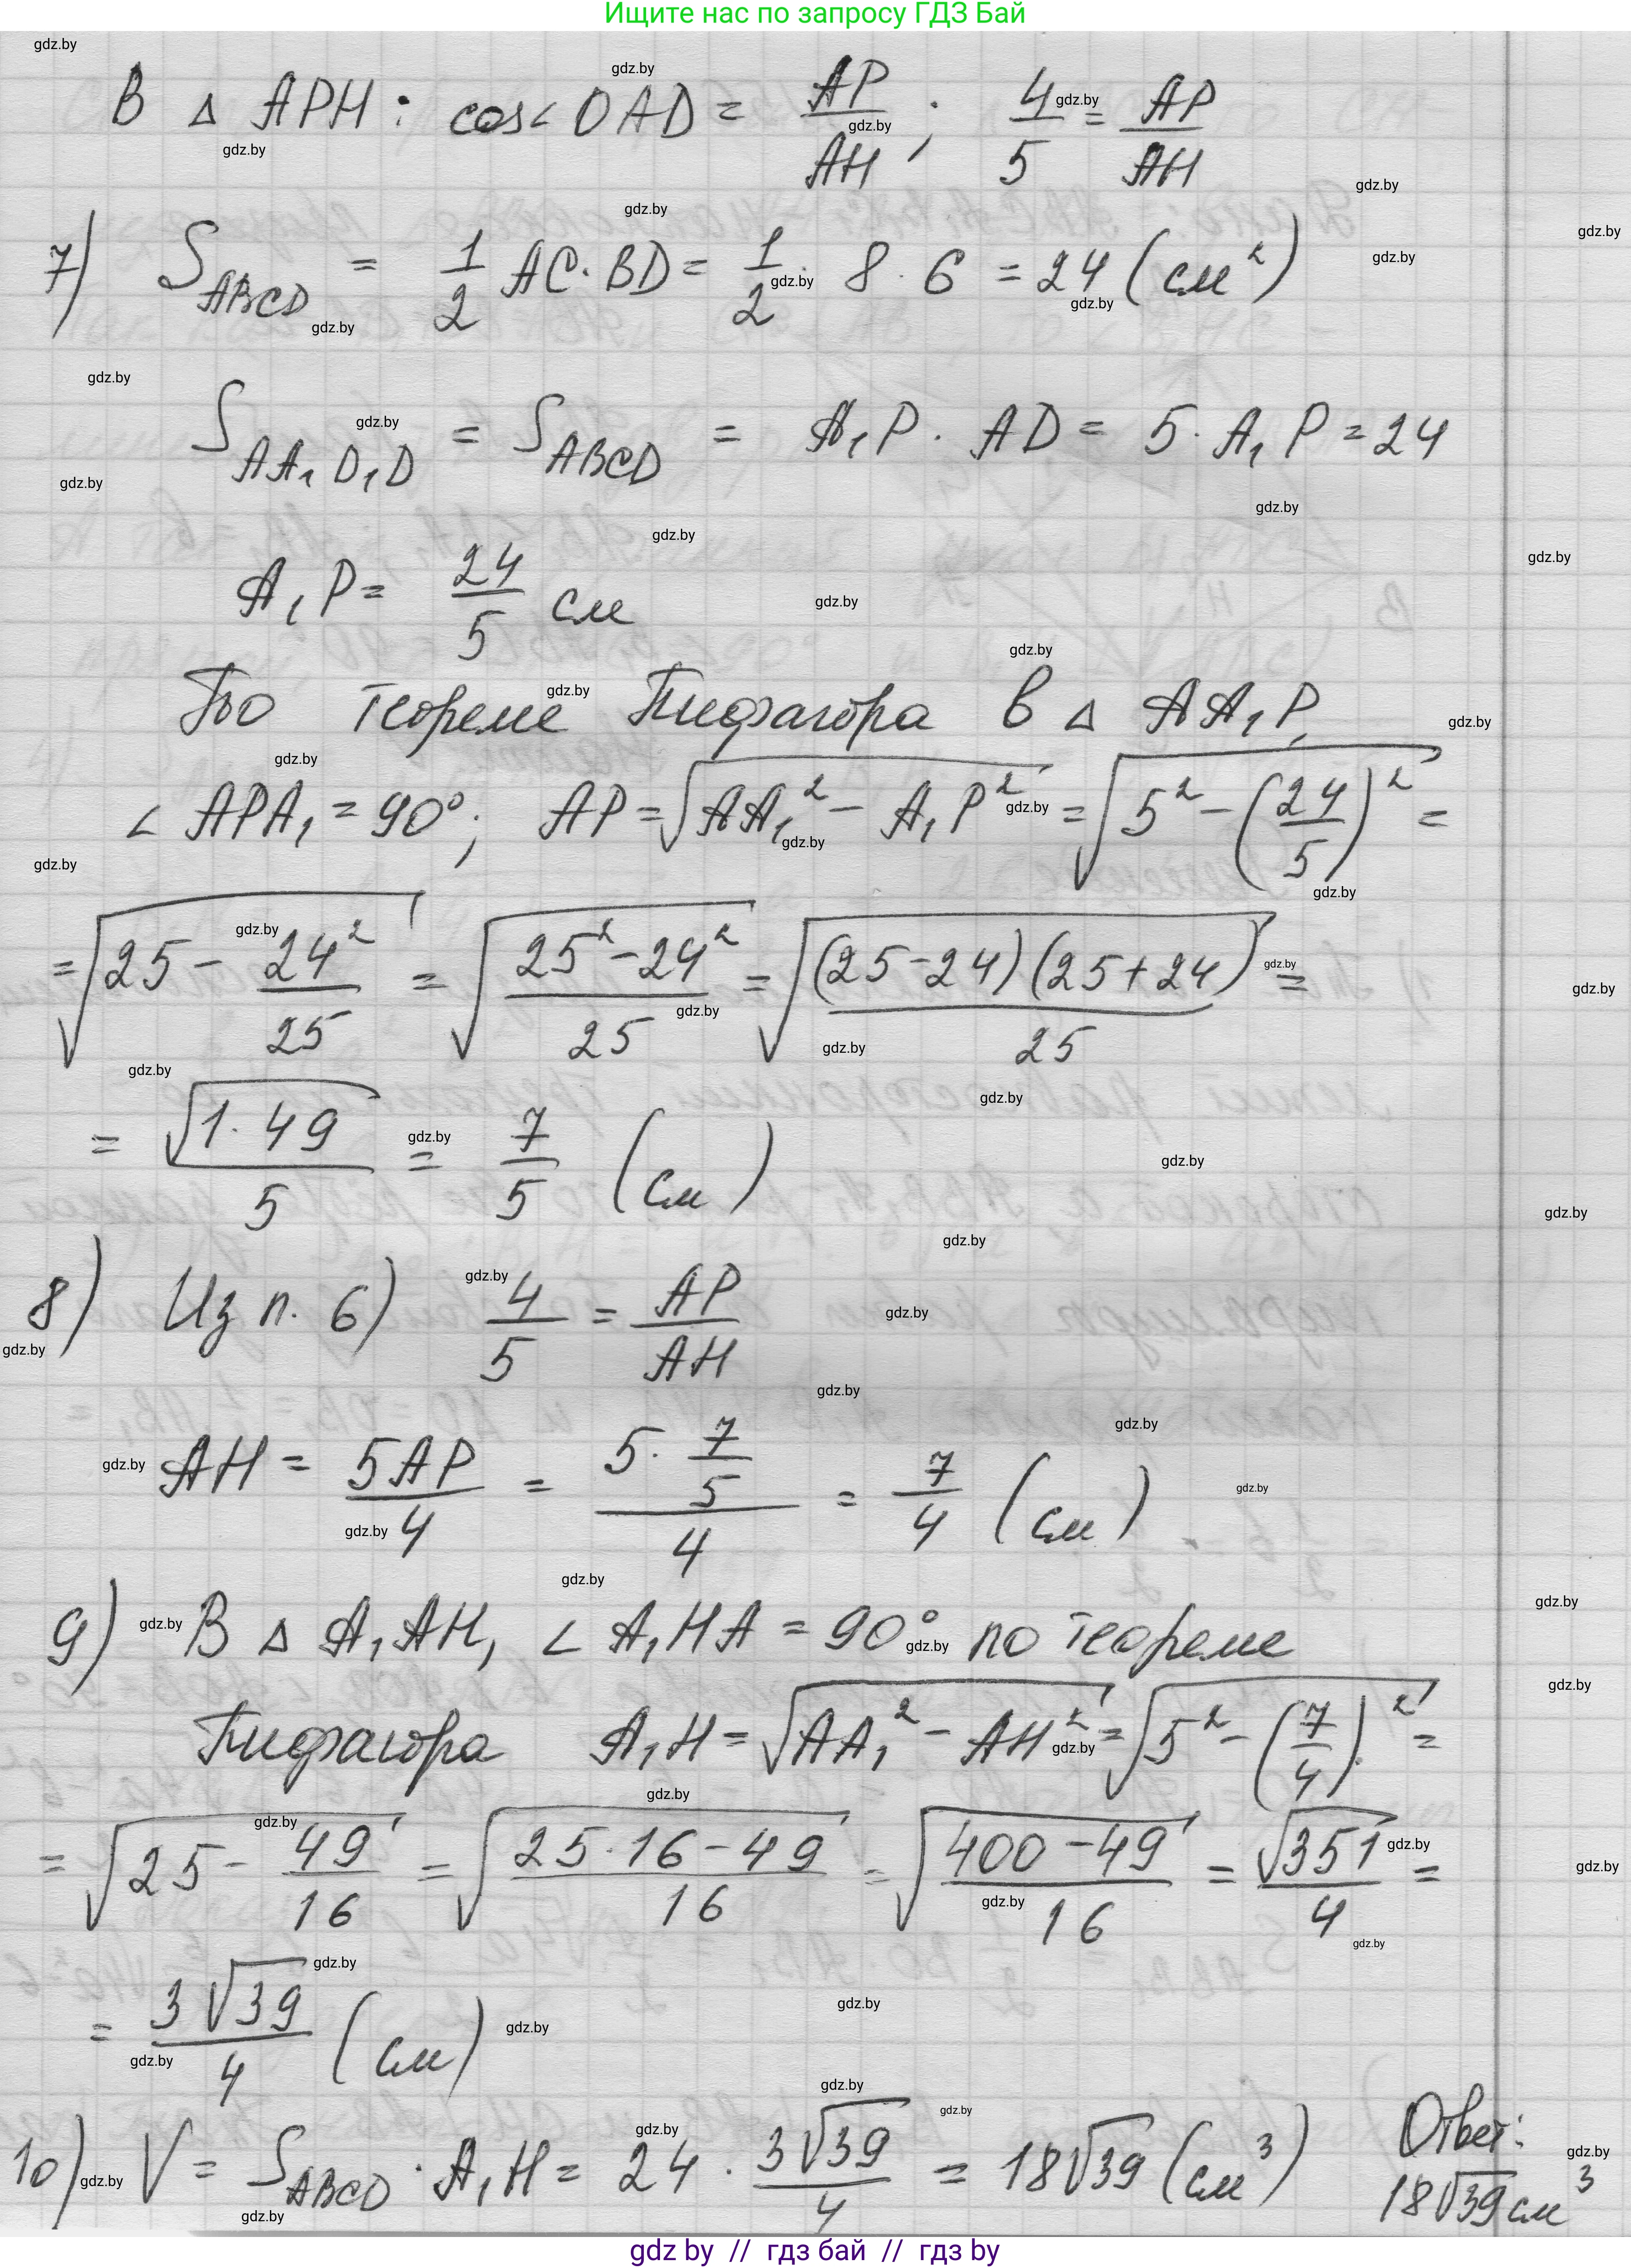 Ищите нас по запросу ГДЗ Бай
В △ APH : cos∠OAD = AP/AH ; 4/5 = AP/AH
7) S_ABCD = 1/2 AC · BD = 1/2 · 8 · 6 = 24 (см²)
S_AA₁D₁D = S_ABCD = A₁P · AD = 5 · A₁P = 24
A₁P = 24/5 см
По теореме Пифагора в △ AA₁P,
∠ APA₁ = 90°; AP = √(AA₁² − A₁P²) = √(5² − (24/5)²) =
= √(25 − 24²/25) = √((25² − 24²)/25) = √((25−24)(25+24)/25) =
= √(1 · 49)/5 = 7/5 (см)
8) Из п. 6) 4/5 = AP/AH
AH = 5AP/4 = (5 · 7/5)/4 = 7/4 (см)
9) В △ A₁AH, ∠ A₁HA = 90° по теореме
Пифагора A₁H = √(AA₁² − AH²) = √(5² − (7/4)²) =
= √(25 − 49/16) = √((25·16 − 49)/16) = √((400 − 49)/16) = √351/4 =
= 3√39/4 (см)
10) V = S_ABCD · A₁H = 24 · 3√39/4 = 18√39 (см³)
Ответ:
18√39 см³
gdz by // гдз бай // гдз by